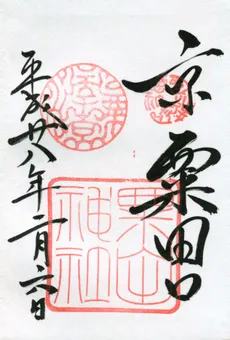 京
粟田口
平成廿八年二月六日
粟田
神社